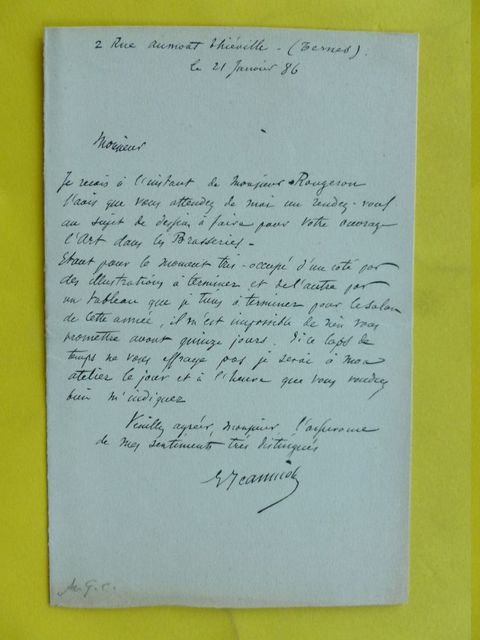 2 Rue aumont thiéville - (Ternes).
le 21 Janvier 86
Monsieur
Je reçois à l'instant de Monsieur Rougeron
l'avis que vous attendez de moi un rendez-vous
au sujet de dessins à faire pour votre ouvrage
l'Art dans les Brasseries -
Etant pour le moment très-occupé d'un côté par
des illustrations à terminer et de l'autre par
un tableau que je tiens à terminer pour le salon
de cette année, il m'est impossible de rien vous
promettre avant quinze jours. Si ce laps de
temps ne vous effraye pas je serai à mon
atelier le jour et à l'heure que vous voudrez
bien m'indiquer
Veuillez agréer, Monsieur l'assurance
de mes sentiments très distingués
Jeanniot